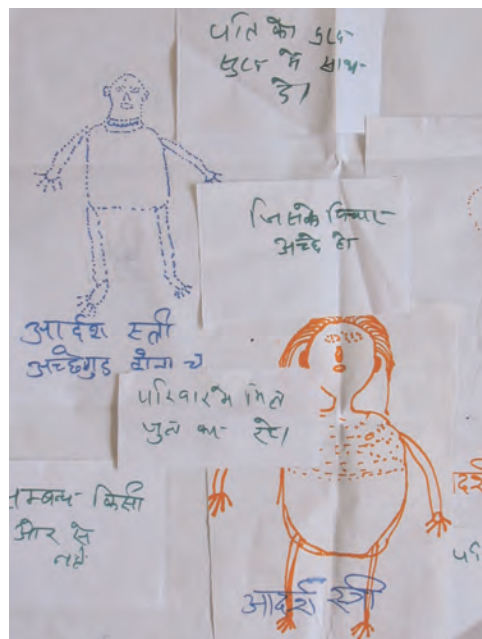 पति के
सुख में साथ
दे।
जिसके विचार
अच्छे हो
आर्दश स्त्री
अच्छेगुड होना चे
परिवारमे मिल
जुल कर रहे।
सम्बन्ध किसी
और से
नही
आदर्श स्त्री